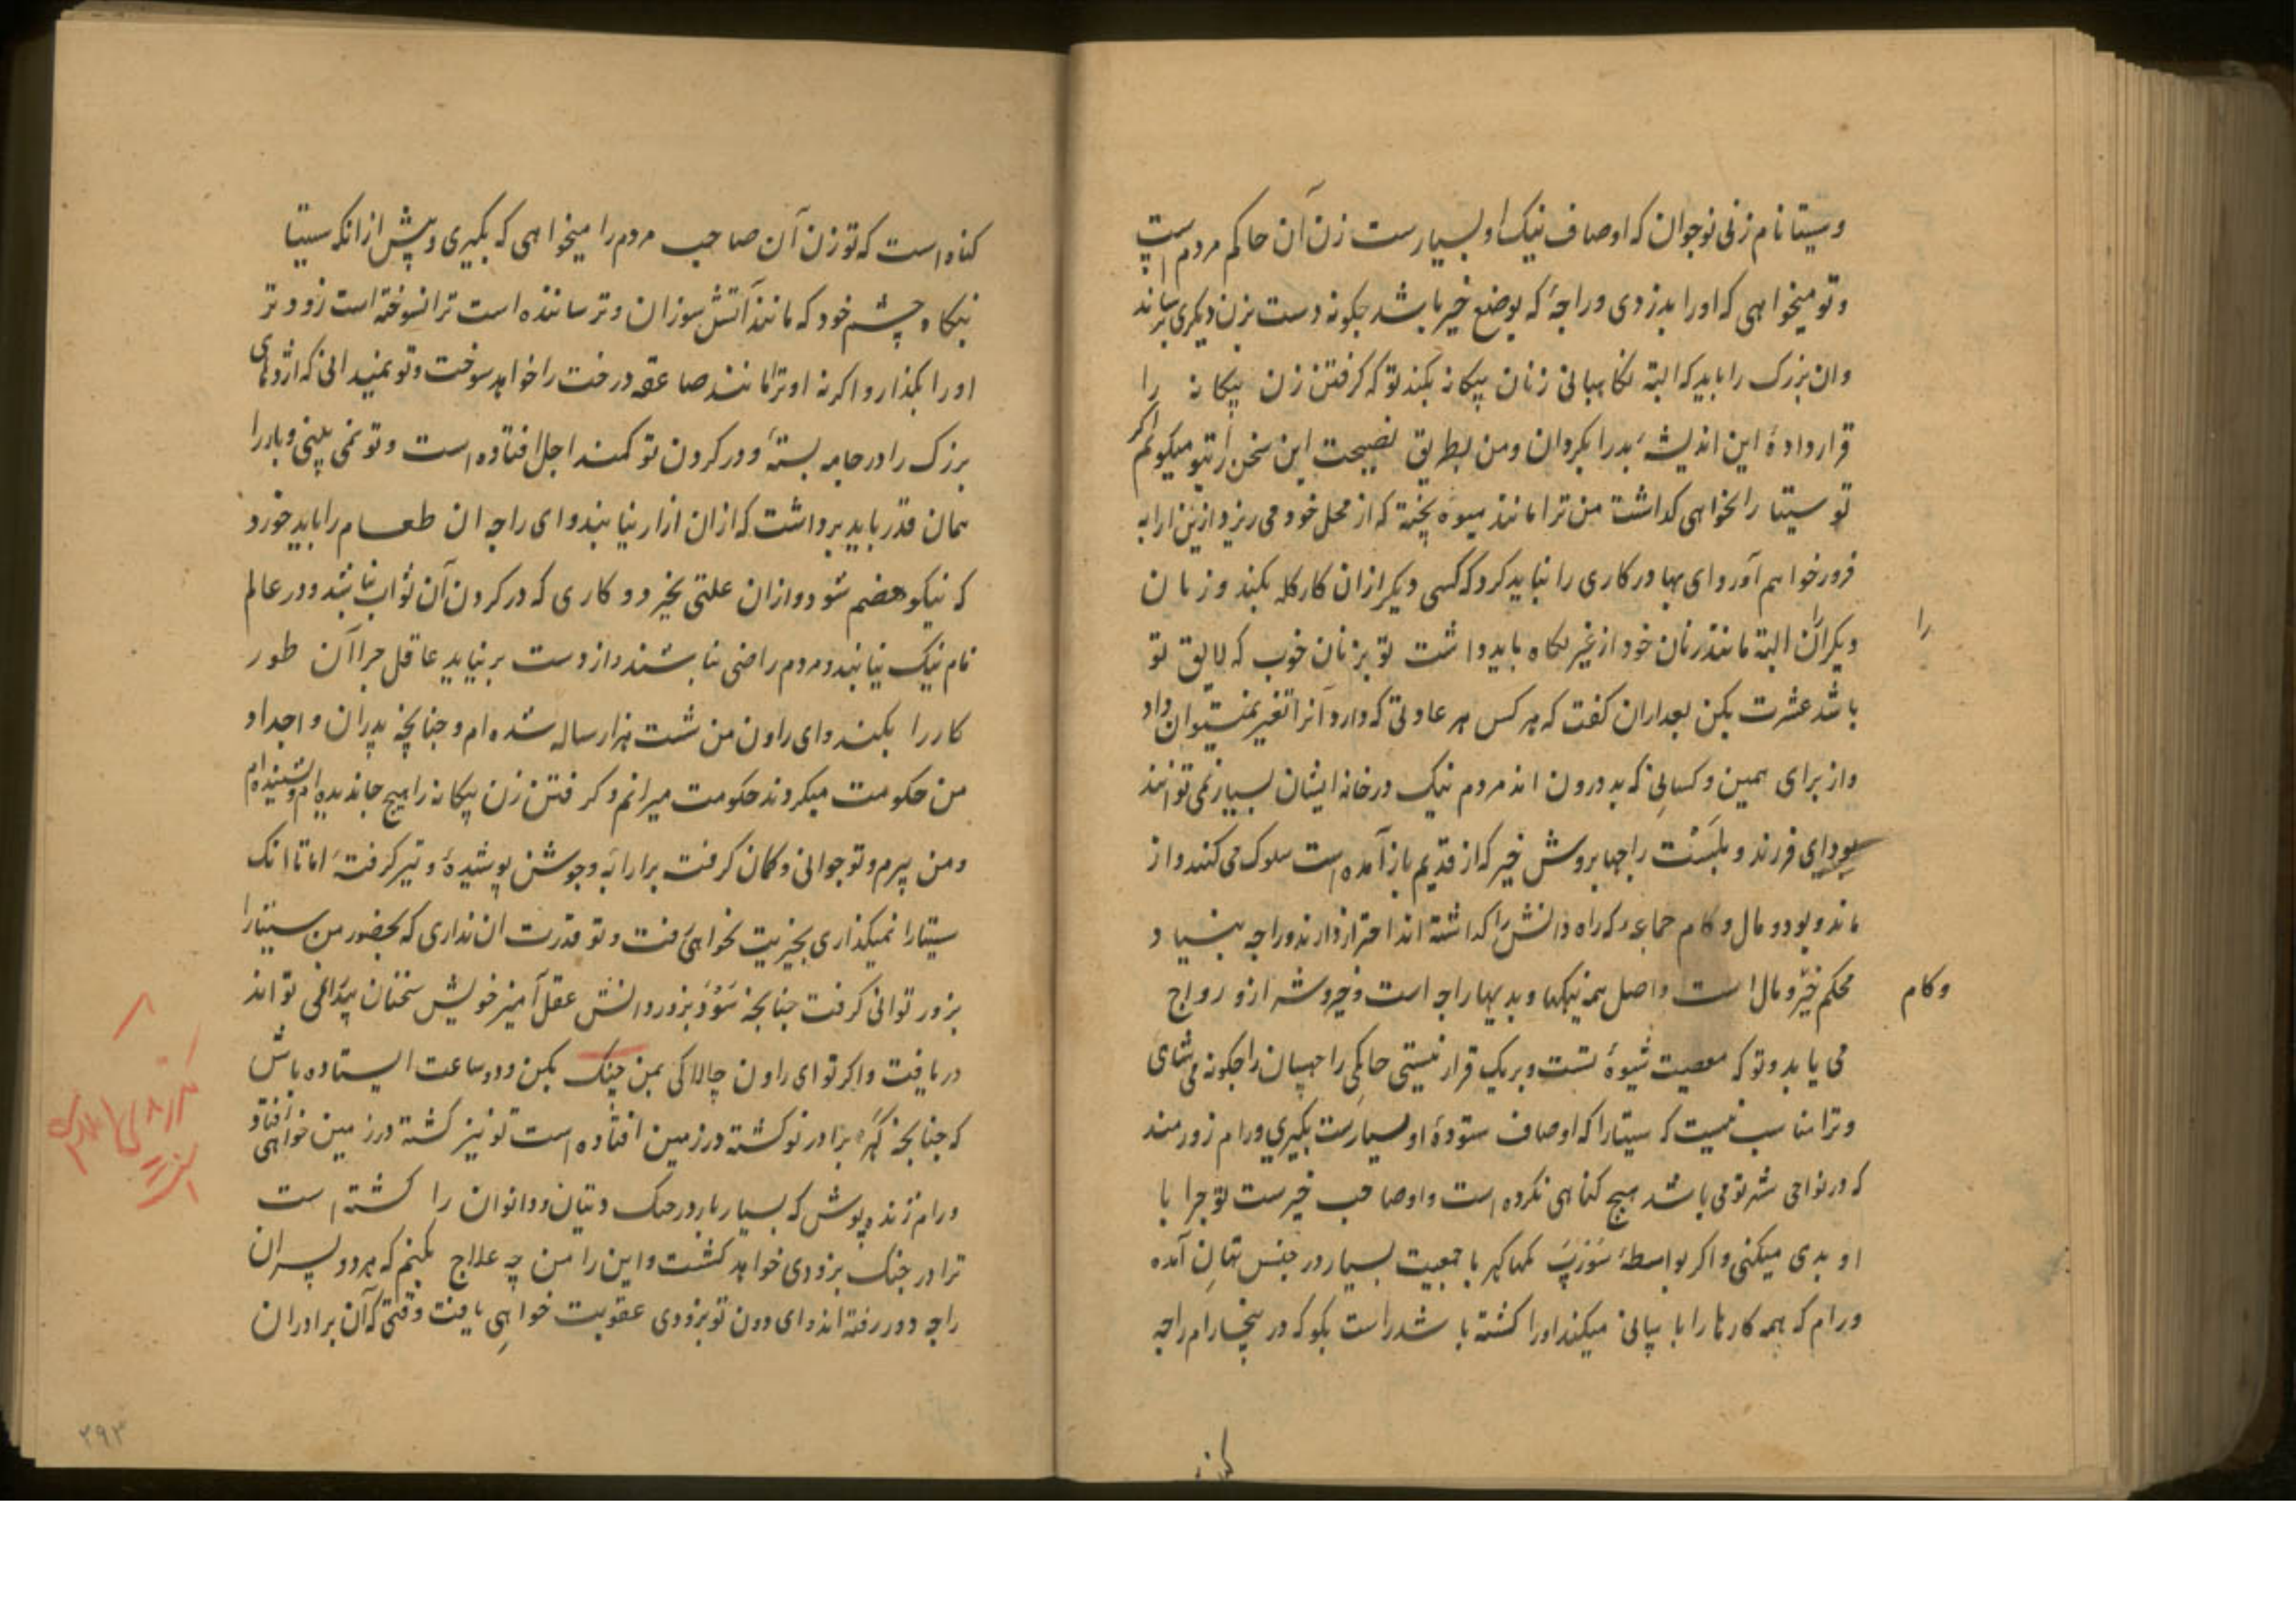 وسیتا نام زنی نوجوان که اوصاف نیک او بسیارست زن آن حاکم مردم است
وتو میخواهی که اورا بدزدی وراجهٔ که بوضع خیر باشد چکونه دست بزن دیکری برساند
وان بزرک را باید که البته نکاهبانی زنان بیکانه بکند توکه کرفتن زن بیکانه را
قرار دادهٔ این اندیشهٔ بدرا بکردان ومن بطریق نصیحت این سخن را بتو میکویم اکر
تو سیتا را نخواهی کذاشت من ترا مانند میوهٔ پخته که از محل خود می ریزد ازین ارابه
فرود خواهم آورد ای بهادر کاری را نباید کرد که کسی دیکر ازان کار کله بکند وزنان
دیکران را البته مانند زنان خود از غیر نکاه باید داشت تو بزنان خوب که لایق تو
باشد عشرت بکن بعد ازان کفت که هر کس هر عادتی که دارد آنرا تغیر نمیتوان داد
واز برای همین وکسانی که بد درون اند مردم نیک در خانه ایشان بسیار نمی توانند
بود ای فرزند و راجها بروش خیر که از قدیم باز آمده است سلوک می کنند واز
ماند وبود و مال وکام جماعه که راه دانش را کذاشته اند احتراز دارند وراجه بنیاد
محکم خیر ومال وکام است واصل همه نیکیها وبدیها راجه است وخیر وشر ازو رواج
می یابد وتو که معصیت شیوهٔ تست وبریک قرار نیستی حاکمی را چکونه می شای
وترا مناسب نیست که سیتا را که اوصاف ستودهٔ او بسیارست بکیری ورام زورمند
که در نواحی شهر تو می باشد هیچ کناهی نکرده است واو صاحب خیرست تو چرا با
او بدی میکنی واکر بواسطهٔ کهر با جمعیت بسیار در آمده
ورام که همه کارها را میکند اورا کشته باشد راست بکو که در رام راجه
کناه
کناه است که تو زن آن صاحب مردم را میخواهی که بکیری وپیش ازانکه سیتا
بنکاه چشم خود که مانند آتش سوزان وترساننده است ترا نسوخته است زودتر
اورا بکذار واکرنه او ترا مانند صاعقه درخت را خواهد سوخت وتو نمیدانی که اژدهای
بزرک را در جامه بستهٔ ودر کردن تو کمند اجل افتاده است وتو نمی بینی وبار را
همان قدر باید برداشت که ازان ازار نیابند وای راجه ان طعام را باید خورد
که نیکو هضم شود وازان علتی نخیزد وکاری که در کردن آن ثواب نباشد ودر عالم
نام نیک نیابند ومردم راضی نباشند واز دست برنیاید عاقل چرا آن طور
کار را بکند وای راون من شست هزار ساله شده ام وچنانچه پدران واجداد
من حکومت میکردند حکومت میرانم وکرفتن زن بیکانه را هیچ جا ندیده ام ونشنیده ام
ومن پیرم وتو جوانی وکمان کرفته برارابه وجوشن پوشیدهٔ وتیر کرفتهٔ اما تا انکه
سیتارا نمیکذاری بخیریت نخواهی رفت وتو قدرت ان نداری که بحضور من سیتارا
بزور توانی کرفت چنانچه بزور دانش عقل آمیز خویش سخنان نمی تواند
دریافت واکر تو ای راون چالاکی بمن جنک بکن ودو ساعت ایستاده باش
که چنانچه کهر برادر تو کشته در زمین افتاده است تو نیز کشته در زمین خواهی افتاد
ورام ژنده پوش که بسیار بار در جنک دیتان ودانوان را کشته است
ترا در جنک بزودی خواهد کشت واین را من چه علاج بکنم که هر دو پسران
راجه دور رفته اند وای دون تو بزودی عقوبت خواهی یافت وقتی که آن برادران
۳۹۳